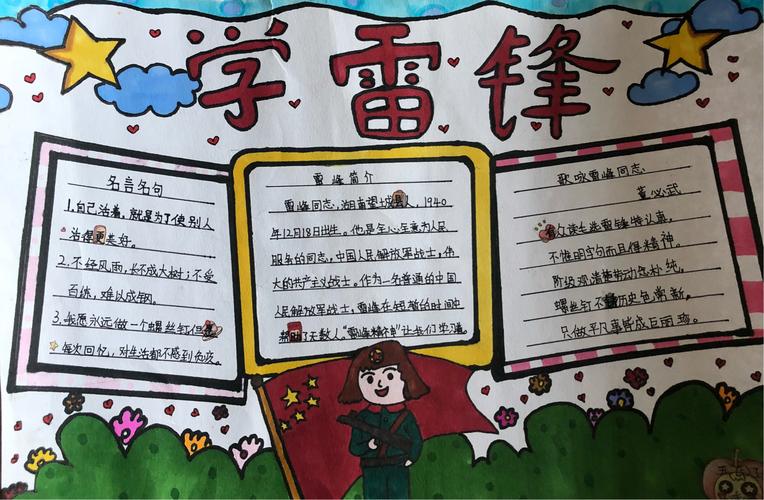 学雷锋
名言名句
1.自己活着，就是为了使别人
活得更美好。
2.不经风雨，长不成大树；不受
百练，难以成钢。
3.我愿永远做一个螺丝钉但
每次回忆，对生活都不感到负疚。
雷峰简介
雷峰同志，湖南望城县人，1940
年12月18日出生。他是全心全意为人民
服务的同志，中国人民解放军战士，伟
大的共产主义战士。作为一名普通的中国
人民解放军战士，雷峰在短暂的时间中
帮助了无数人。“雷峰精神”让我们学习。
歌咏雷峰同志
董必武
有众读毛选雷锋特认真。
不惟明字句而且得精神。
阶级观清楚劳动色朴纯。
螺丝钉不锈历史色常新。
只做平凡事皆成巨丽珍。